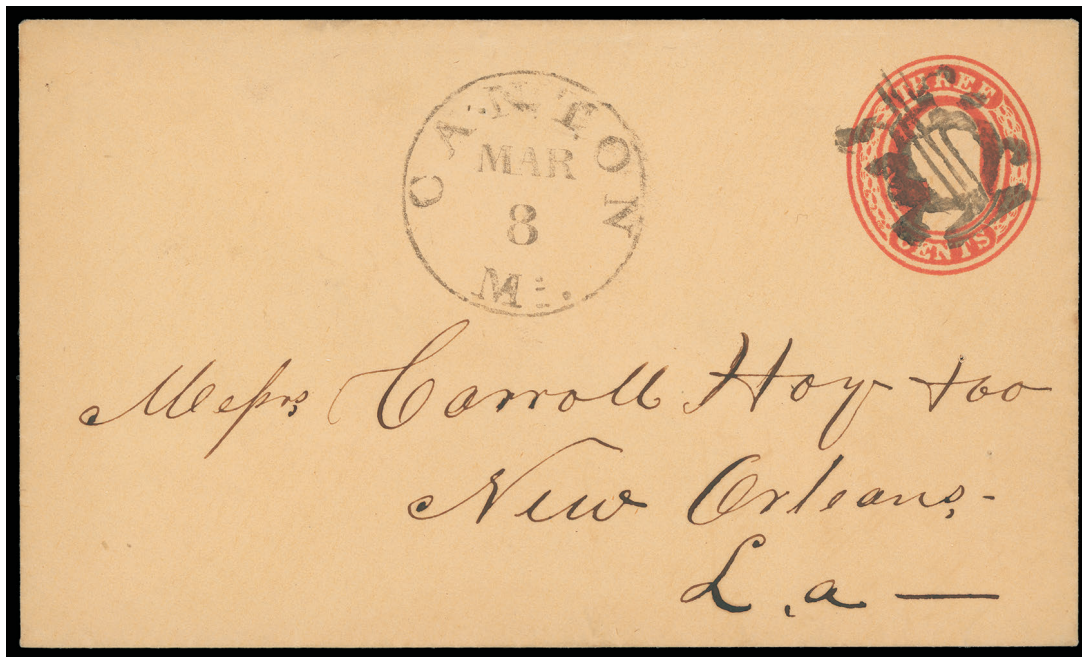 CANTON
MAR
8
Mi.
THREE
CENTS
Messrs Carroll Hoy & Co
New Orleans,
La